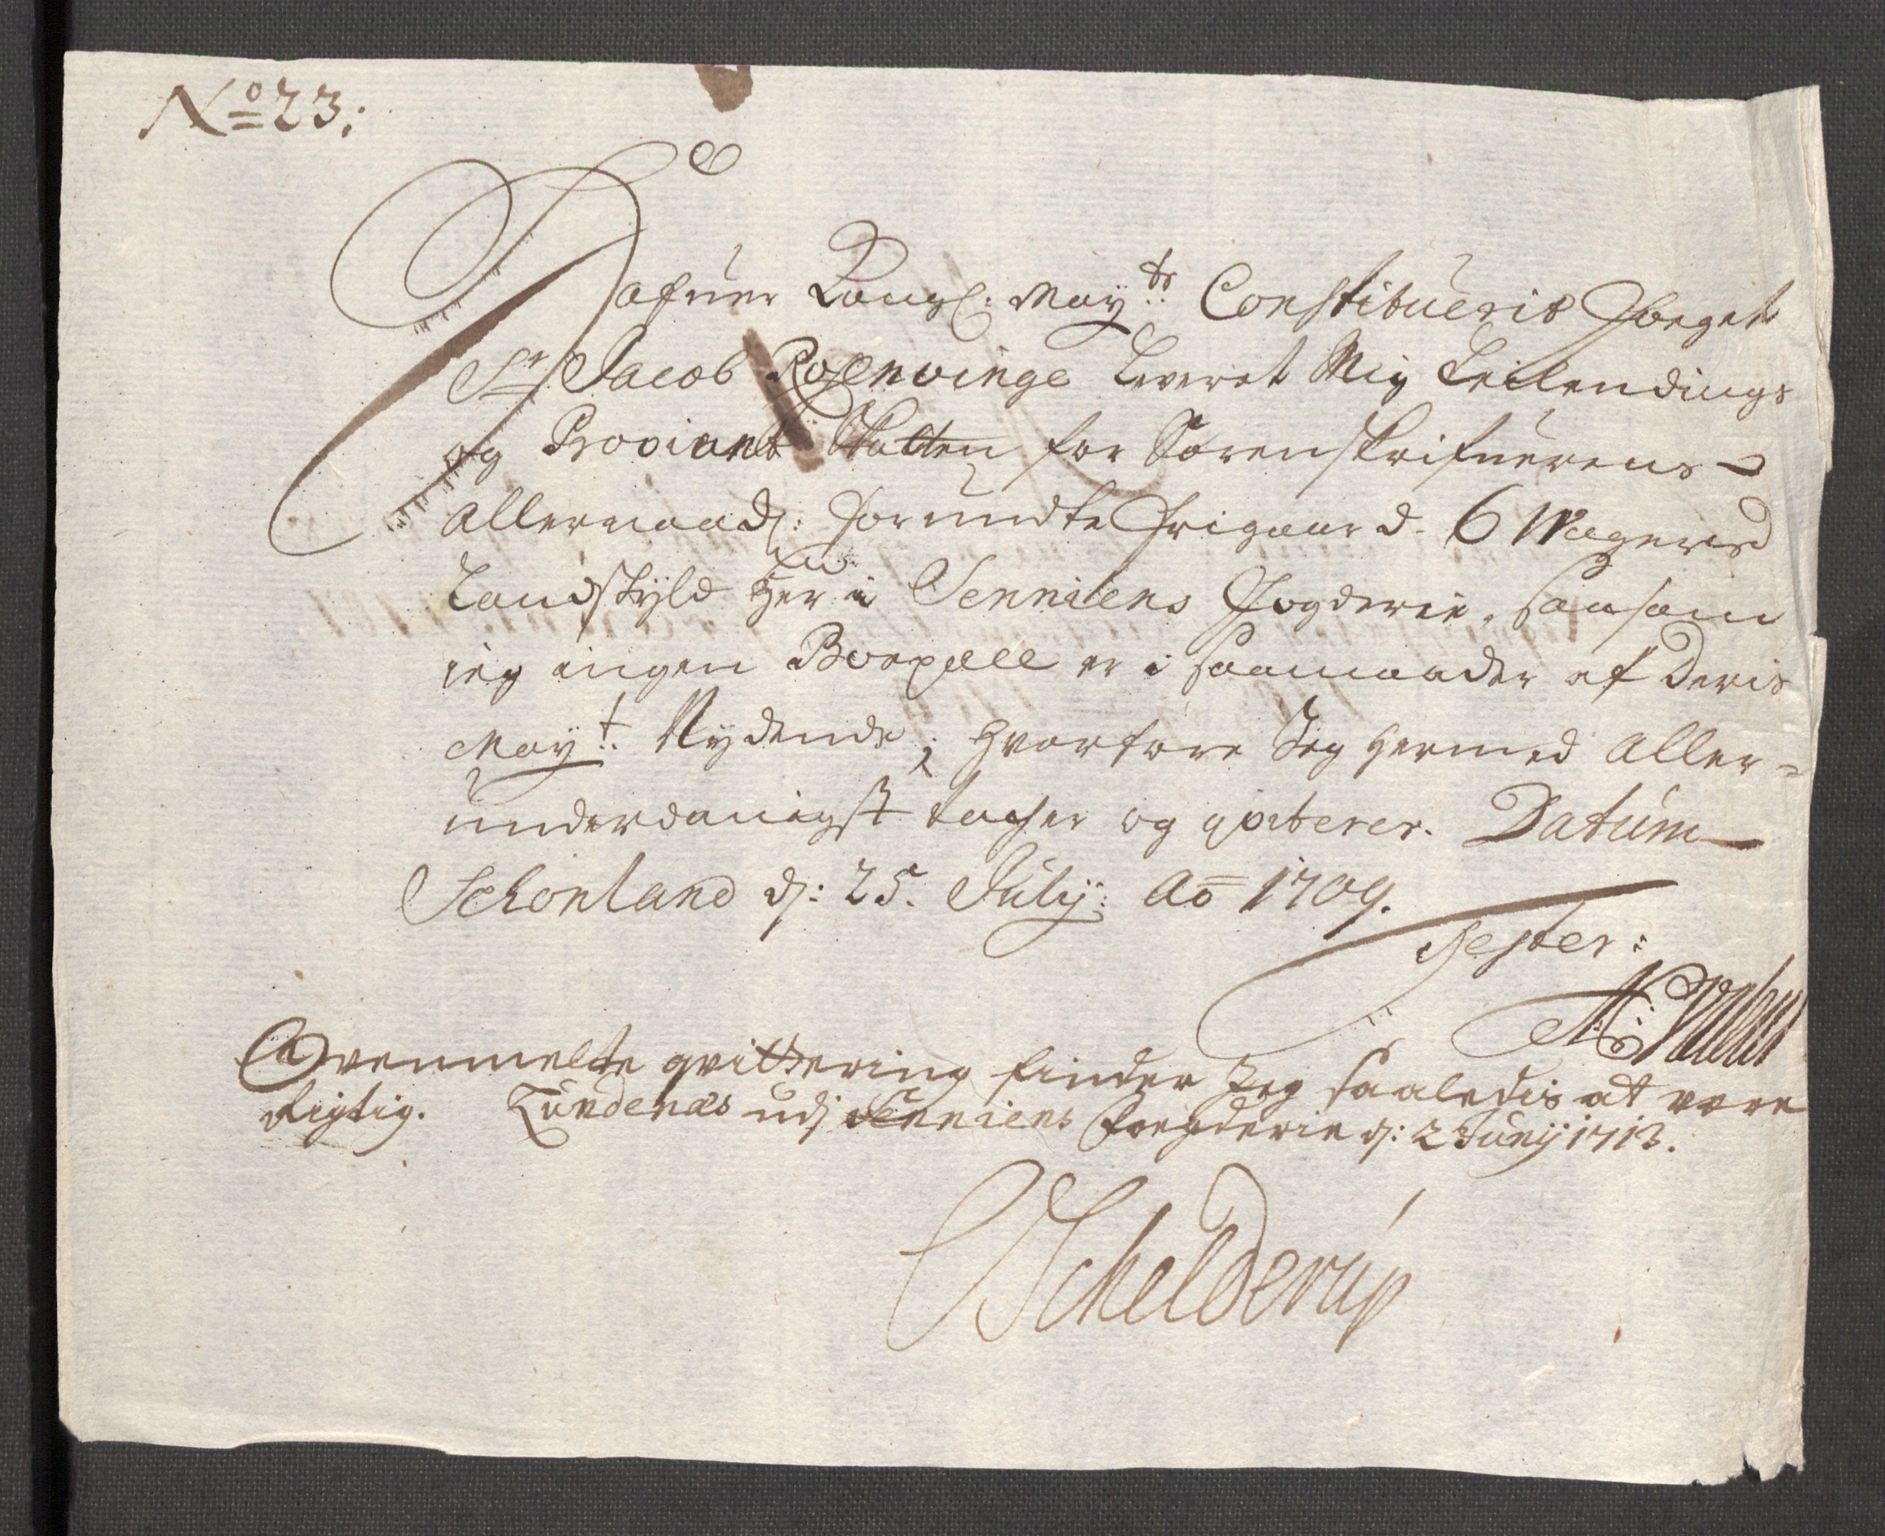 No 23:
Hafuer Kongl: May:ts Constituerit Foeget
Sr Jacob Rosenvinge Leveret Mig Leilendings
og Proviant Skatten for Sorenskrifuerens
Allernaad: Forundte Frigaard 6 Wogers
Landskyld Her i Senniens Fogderie, saasom
ieg ingen er i saamaader af Deris
May:t Nydende; Hvorfore Jeg hermed Aller=
underdanigst tacher og qviterer. Datum
Schonland d: 25. July: Ao 1709.
Tester:
Ovenmelte qvittering finder Jeg saaledis at være
Rigtig. Lundenæs udj Senniens Foegderie d: 2 Junij 1713.
Schelderup